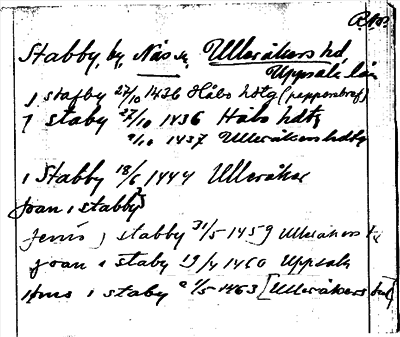 Stabby, by, Näs sn. Ulleråkers hd,
Uppsala län
j stafby 27/10 1436 Håbo hdtg (pappersbref)
j staby 27/10 1436 Håbo hdtg
1437 Ulleråkers hdtg
i Stabby 18/6 1444 Ulleråker
Joan i stabby
Jenis j stabby 31/5 1459 Ulleråkers
Joan i staby 19/4 1460 Uppsala
i staby 2/5 1463 [Ulleråkers